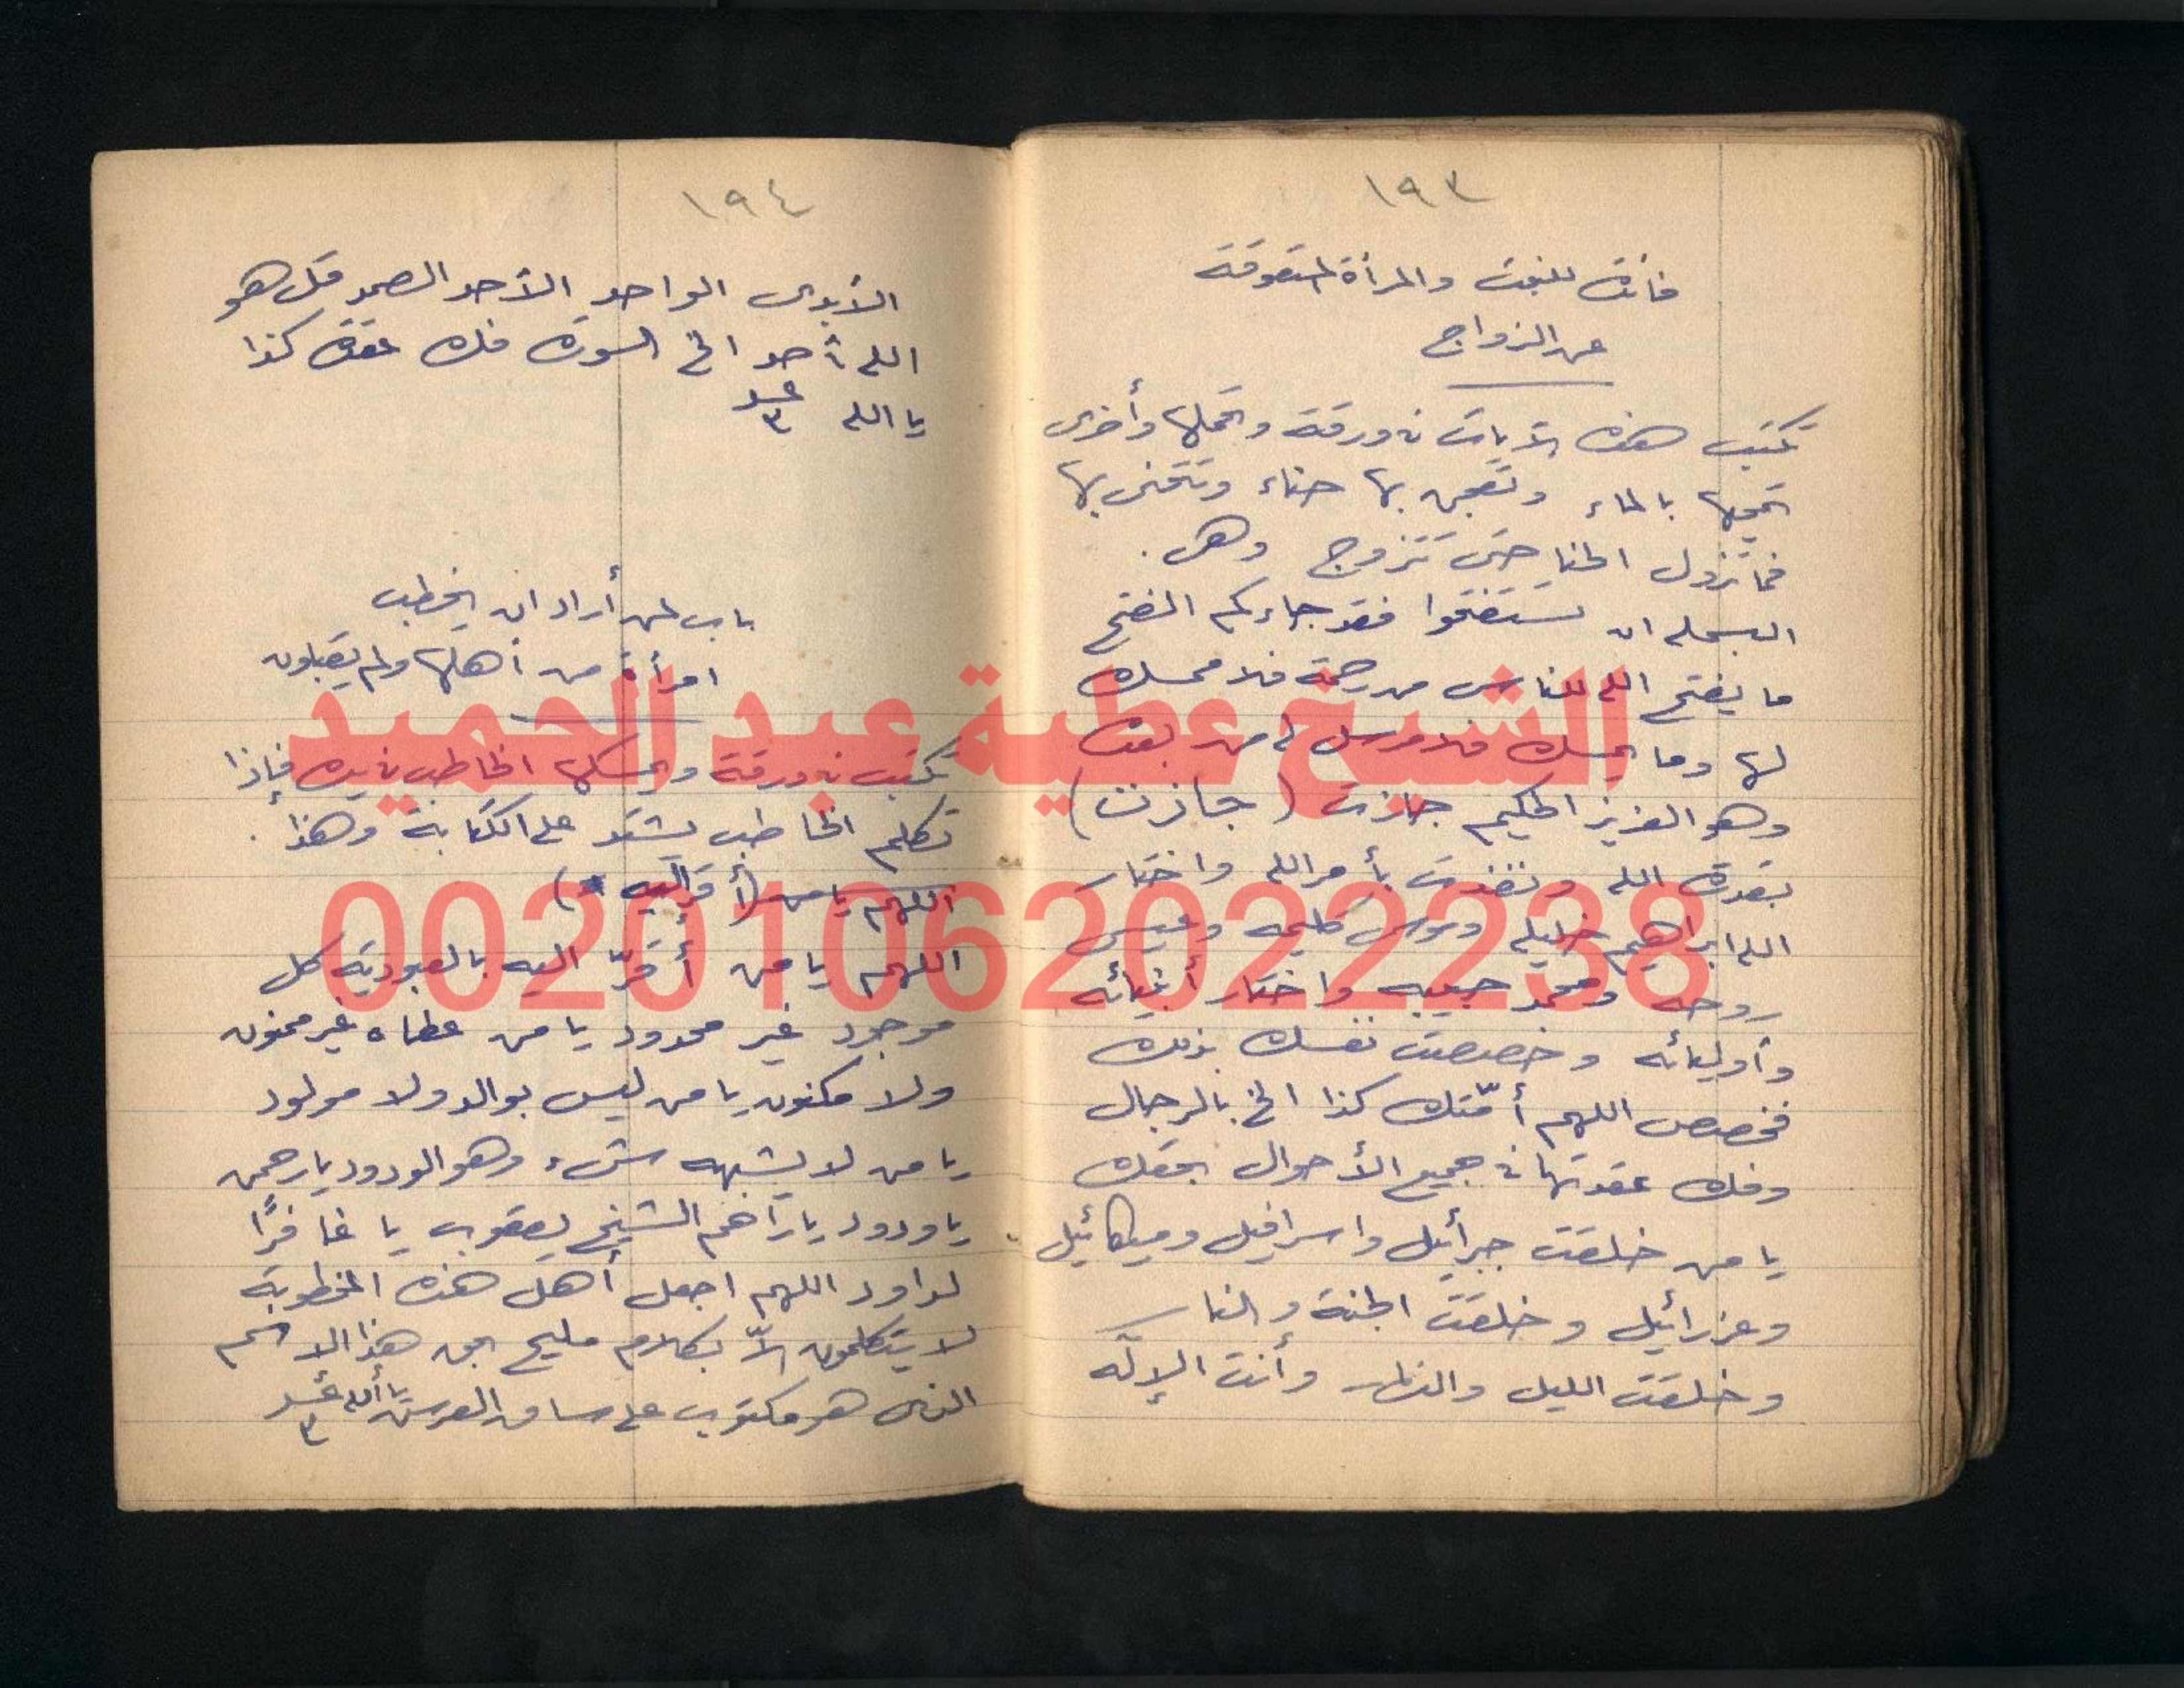 ١٩٣
فائدة للبنت والمرأة المتعوقة
عن الزواج
تكتب هذه الآيات في ورقة وتحملها وأخرى
تمحيها بالماء وتعجن بها حناء وتتحنى بها
فما تزول الحنا حتى تتزوج وهى .
البسمله ان تستفتحوا فقد جاءكم الفتح
ما يفتح الله للناس من رحمة فلا ممسك
لها وما يمسك فلا مرسل له من بعده
وهو العزيز الحكيم جازت ( جازت )
بقدرة الله ونفذت بأمر الله واختار
الله ابراهيم خليله وموسى كليمه وعيسى
روحه ومحمد حبيبه واختار أنبيائه
وأوليائه وخصصت نفسك بذلك
فخصص اللهم أمّتك كذا الخ بالرجال
وفك عقدتها في جميع الأحوال بحقك
يا من خلقت جبرائيل واسرافيل وميكائيل
وعزرائيل وخلقت الجنة والنار
وخلقت الليل والنهار وأنت الإله
١٩٤
الأبدى الواحد الأحد الصمد قل هو
الله أحد الخ السورة فك عقدة كذا
يا الله عدد ٣
باب لمن أراد ان يخطب
امرأة من أهلها ولم يقبلون
تكتب في ورقة ويمسكها الخاطب في يده فإذا
تكلم الخاطب يشد على الكتابة وهذا .
اللهم يا من (أقرّ إليه )
اللهم يا من أقرّ اليه بالعبودية كل
موجود غير محدود يا من عطاه غير ممنون
ولا مكنون يا من ليس بوالد ولا مولود
يا من لا يشبهه شيء وهو الودود يا رحمن
يا ودود يا راحم الشيخ يعقوب يا غافرًا
لداود اللهم اجعل أهل هذه المخطوبة
لا يتكلمون الاّ بكلام مليح بحق هذا الاسم
الذى هو مكتوب على ساق العرش يا ألله عدد ٣
الشيخ عطية عبد الحميد
00201062022238